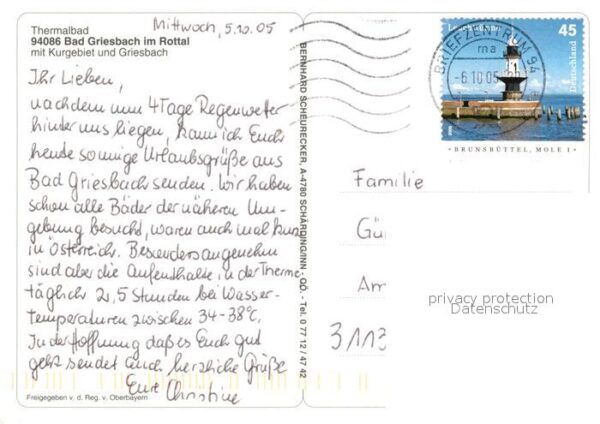 Mittwoch, 5.10.05
Thermalbad
94086 Bad Griesbach im Rottal
mit Kurgebiet und Griesbach
Ihr Lieben,
nachdem nun 4 Tage Regenwetter
hinter uns liegen, kann ich Euch
heute sonnige Urlaubsgrüße aus
Bad Griesbach senden. Wir haben
schon alle Bäder der näheren Um-
gebung besucht, waren auch mal kurz
in Österreich. Besonders angenehm
sind aber die Aufenthalte in der Therme
täglich 2,5 Stunden bei Wasser-
temperaturen zwischen 34-38°C.
In der Hoffnung daß es Euch gut
geht sendet Euch herzliche Grüße
Eure Christine
Freigegeben v. d. Reg. v. Oberbayern
BERNHARD SCHEURECKER, A-4780 SCHÄRDING/INN - OÖ. - Tel. 0 77 12 / 47 42
45
Deutschland
BRIEFZENTRUM 94
ma
-6.10.05
BRUNSBÜTTEL, MOLE 1
Familie
Gü
Am
3113
privacy protection
Datenschutz